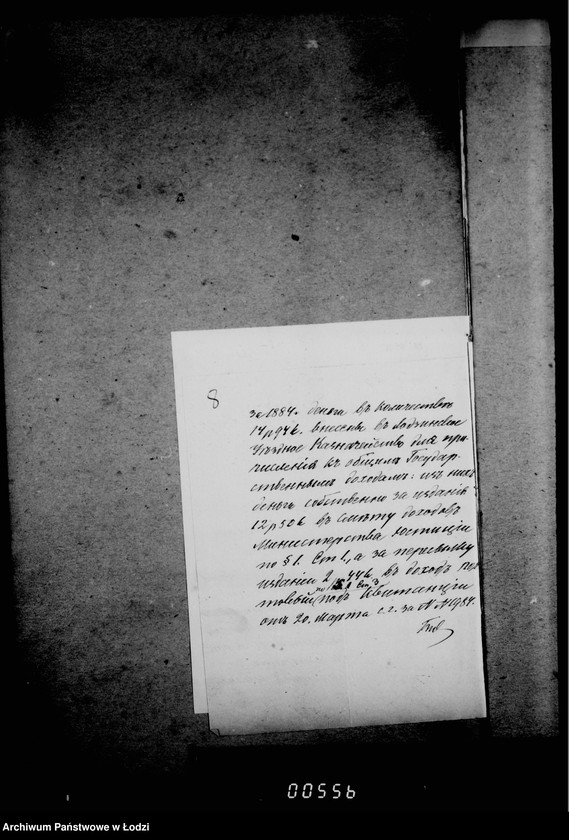 8
за 1884. деньги въ количествѣ
14 р 94 к. внесены въ Лодзинское
Уѣздное Казначейство для при-
численія къ общимъ Государ-
ственнымъ доходамъ: изъ нихъ
деньги собственно за изданія
12 р 50 к въ смѣту доходовъ
Министерства Юстиціи
по § 1. Ст 1, а за пересылку
изданій 2 р 44 к. въ доходъ поч-
товый подъ квитанціи
отъ 20. Марта с. г. за №№ 1984.
00556
Archiwum Państwowe w Łodzi